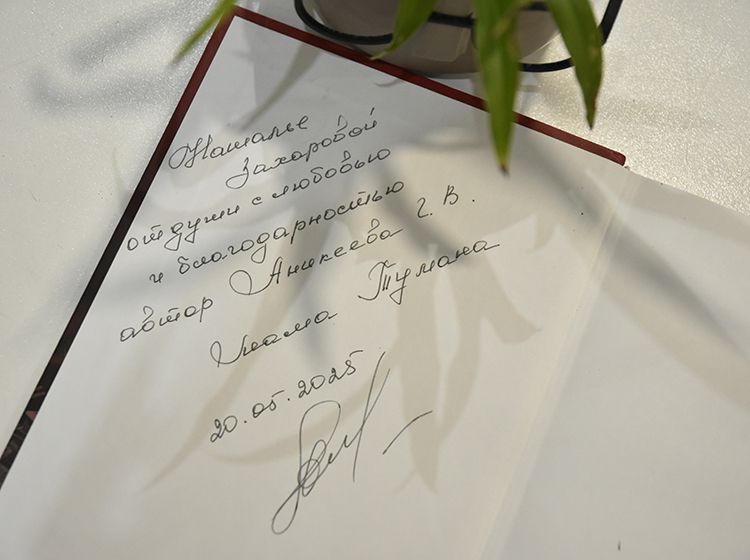 Наталье
Захаровой
от души с любовью
и благодарностью
автор Аникеева Г. В.
мама Тумана
20.05.2025